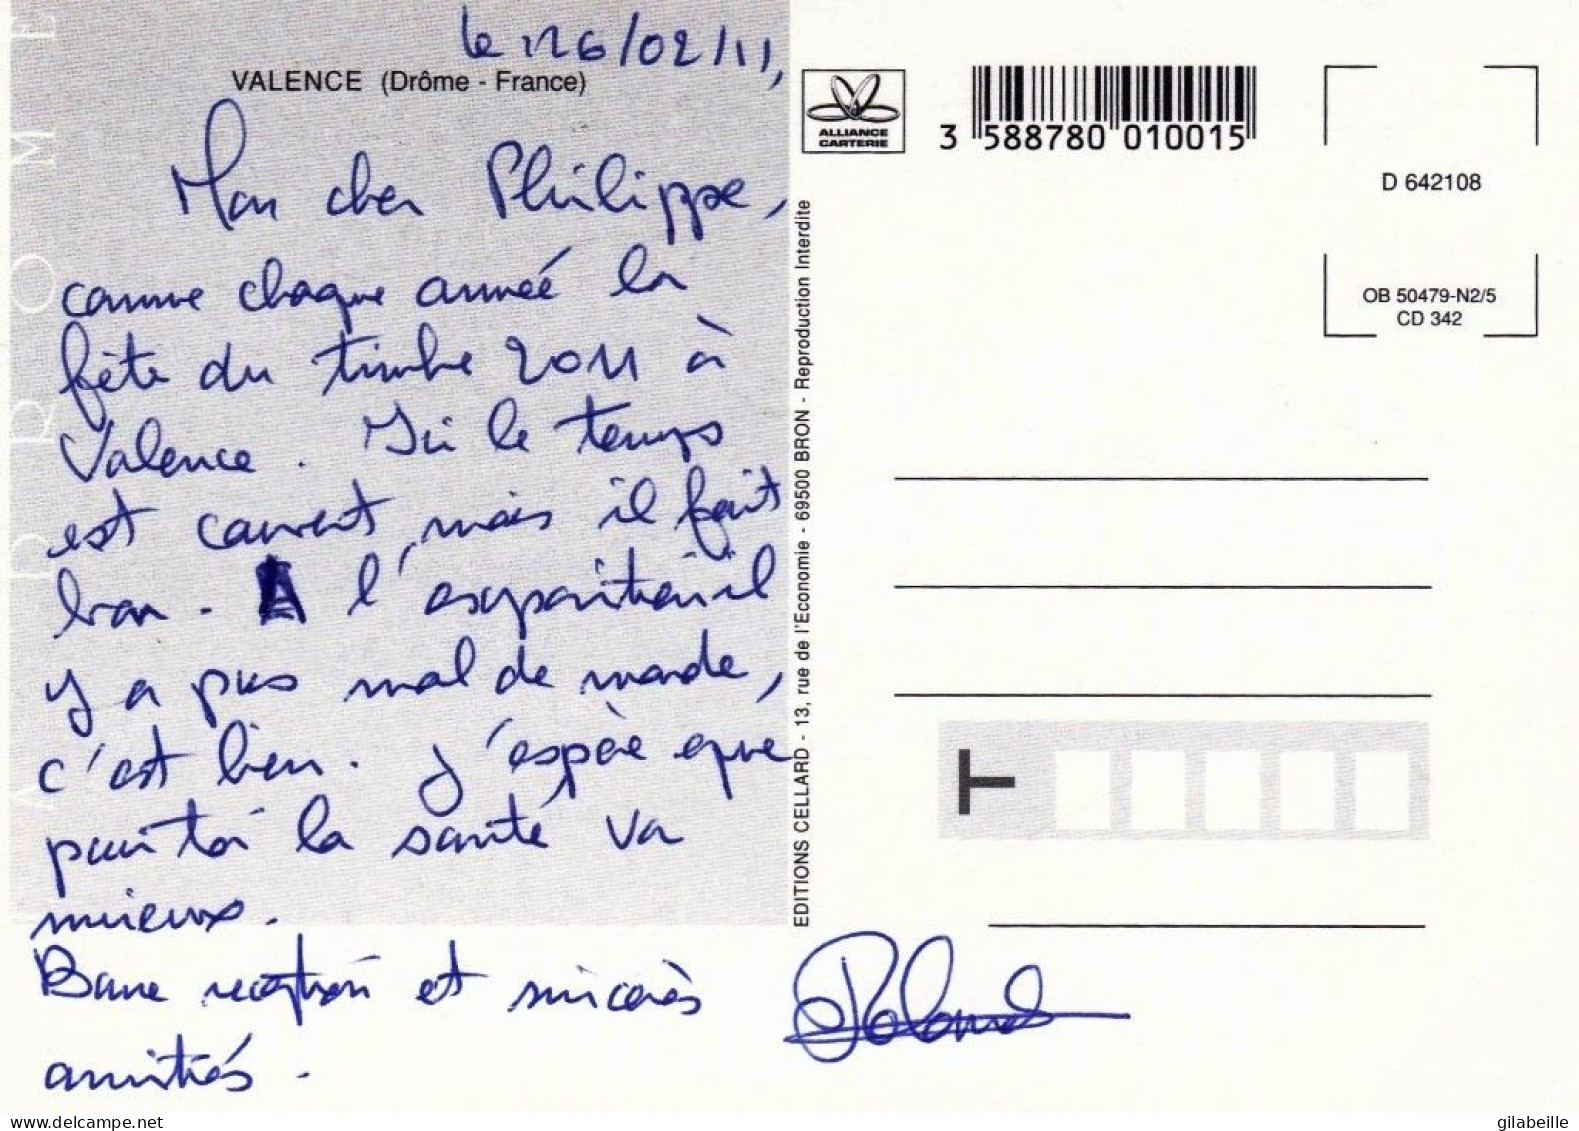 le 26/02/11,
VALENCE (Drôme - France)
Mon cher Philippe,
comme chaque année la
fête du timbre 2011 à
Valence. Ici le temps
est couvert, mais il fait
bon. A l'exposition il
y a pas mal de monde,
c'est bien. J'espère que
pour toi la santé va
mieux.
Bonne réception et sincères
amitiés.
Roland
LA DROME
EDITIONS CELLARD - 13, rue de l'Economie - 69500 BRON - Reproduction Interdite
ALLIANCE
CARTERIE
3 588780 010015
D 642108
OB 50479-N2/5
CD 342
gilabeille